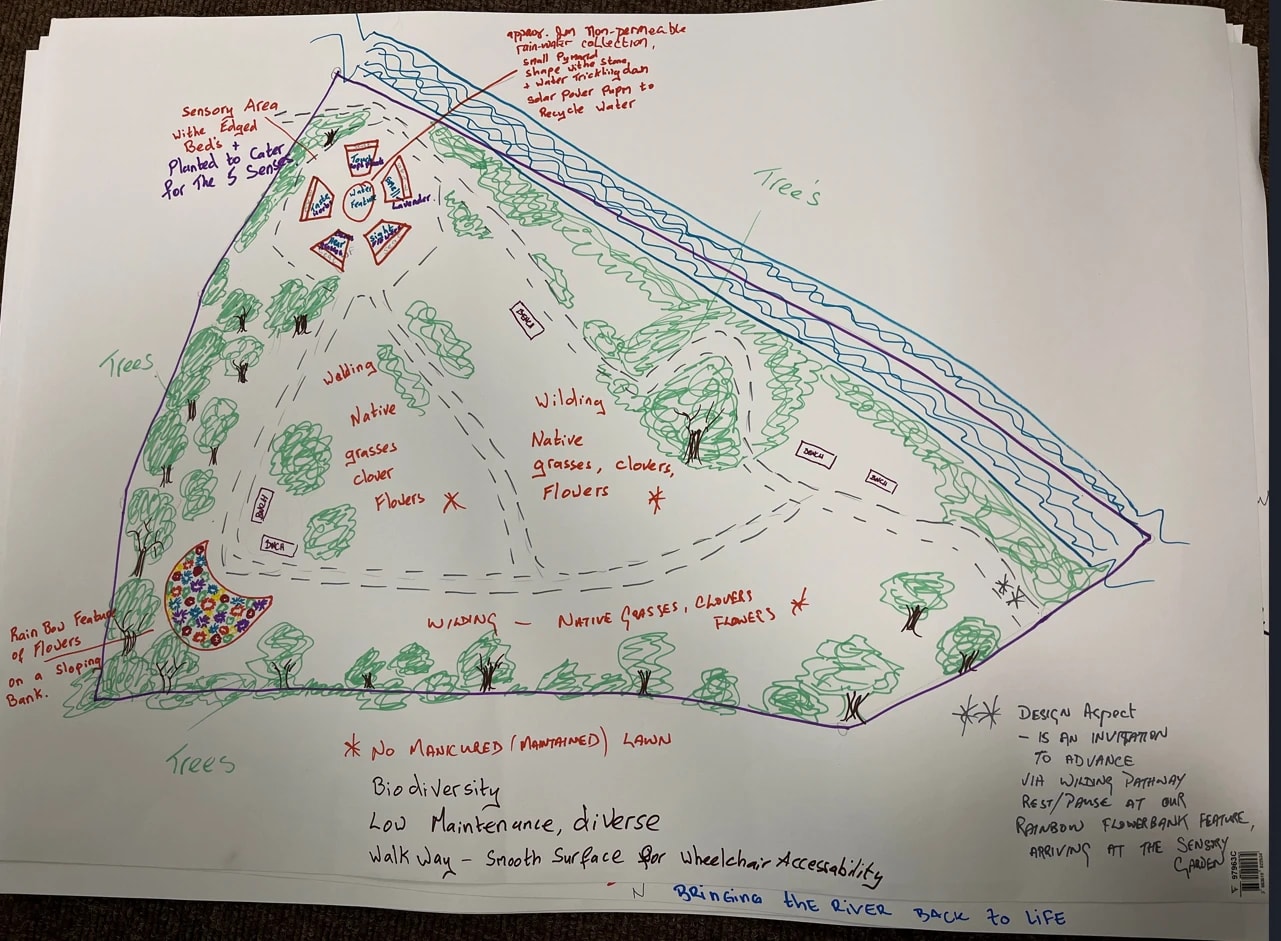 approx. 2m Non-permeable
rain-water collection,
small Pymard
shape withe stone
+ Water Trickling down
Solar Power Pupm to
Recycle Water
Sensory Area
Withe Edged
Bed's +
Planted to Cater
for The 5 Senses.
Touch
Smell
Lavender.
Water
Feature
Taste
Herbs
Hear
Sight
Tree's
Trees
BENCH
Welding
Native
grasses
clover
Flowers *
Wilding
Native
grasses, clovers,
Flowers *
BENCH
BENCH
BENCH
BNCH
WILDING – NATIVE GRASSES, CLOVERS
FLOWERS *
**
Rain Bow Feature
of Flowers
on a Sloping
Bank.
Trees
* NO MANICURED (MAINTAINED) LAWN
Biodiversity
Low Maintenance, diverse
Walk Way – Smooth Surface for Wheelchair Accessability
** DESIGN Aspect
– IS AN INVITATION
TO ADVANCE
VIA WILDING PATHWAY
REST/PAUSE AT OUR
RAINBOW FLOWERBANK FEATURE,
ARRIVING AT THE SENSORY
GARDEN
N BRINGING the RIVER BACK to LIFE
F 97963C